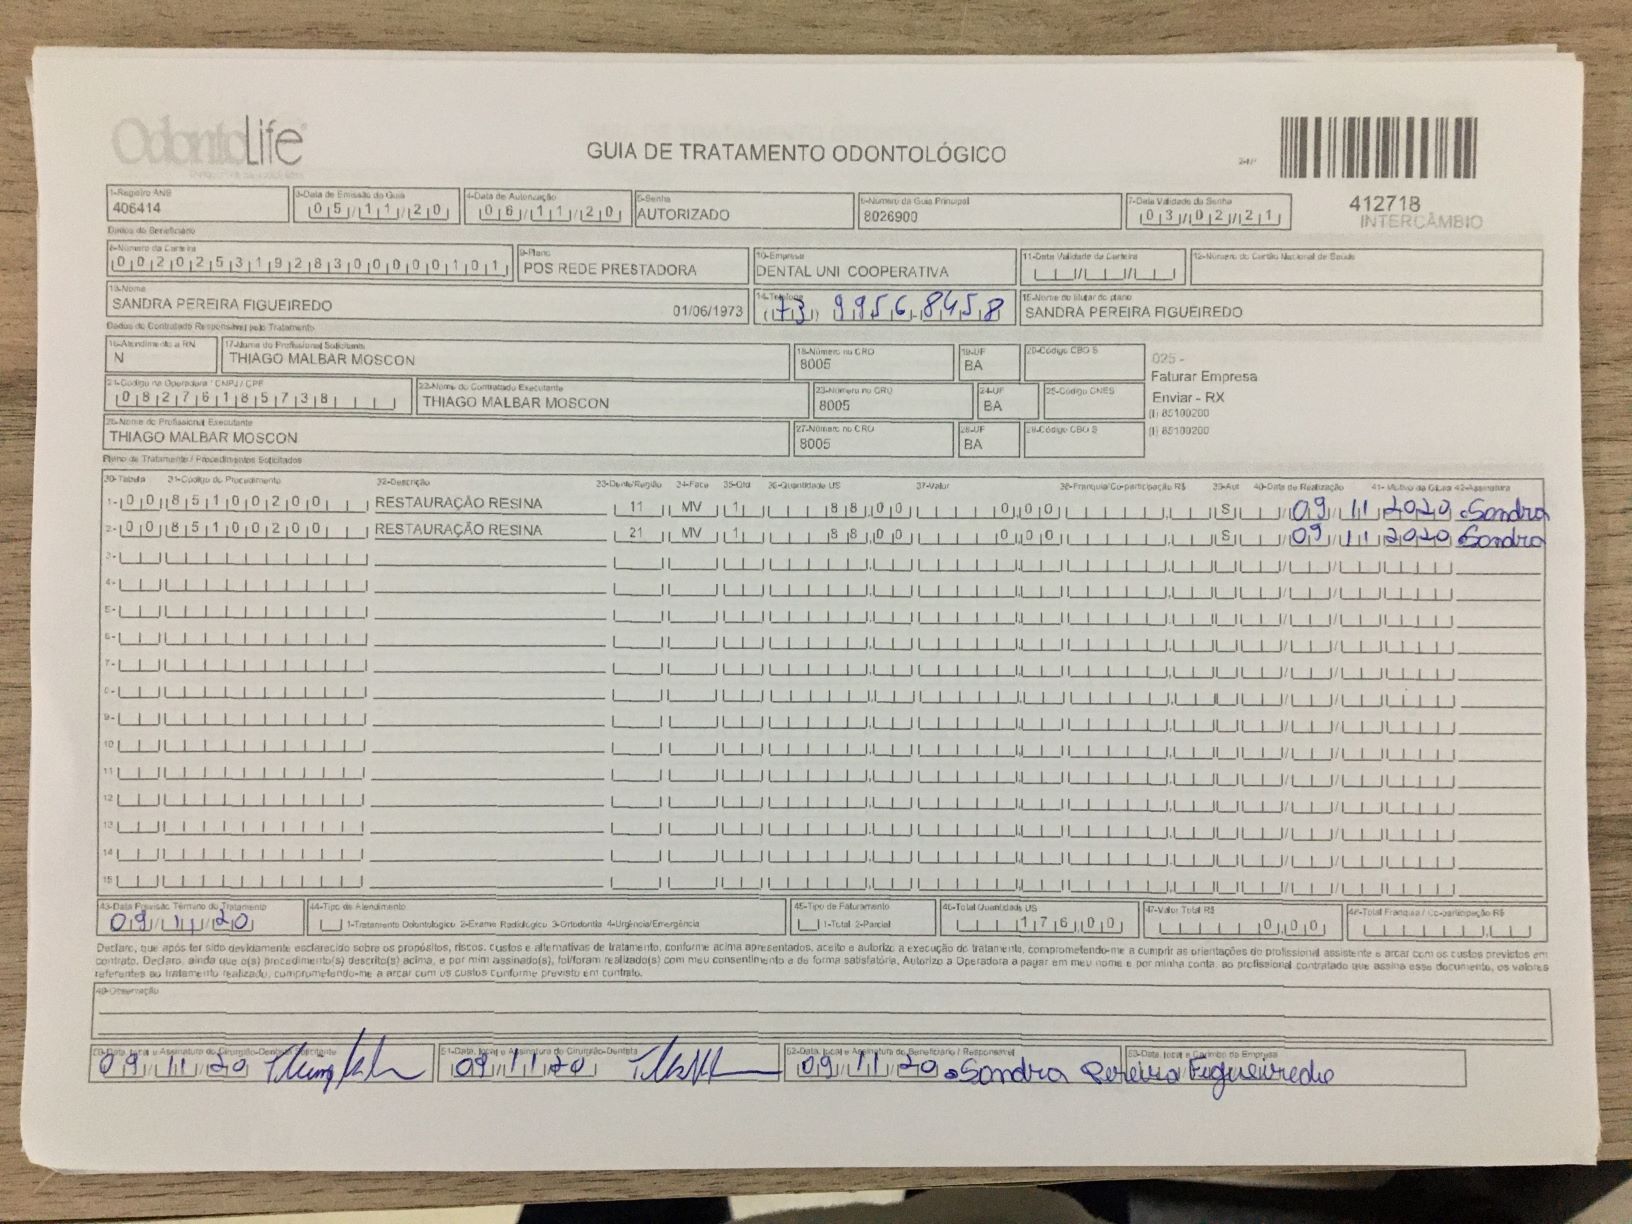 OdontoLife
GUIA DE TRATAMENTO ODONTOLÓGICO
412718
INTERCÂMBIO
1-Registro ANS 3-Data de Emissão da Guia 4-Data de Autorização 5-Senha 6-Número da Guia Principal 7-Data Validade da Senha
406414 05/11/20 06/11/20 AUTORIZADO 8026900 03/02/21
Dados do Beneficiário
8-Número da Carteira 9-Plano 10-Empresa 11-Data Validade da Carteira 12-Número do Cartão Nacional de Saúde
00202531928300000101 POS REDE PRESTADORA DENTAL UNI COOPERATIVA
13-Nome 14-Telefone 15-Nome do titular do plano
SANDRA PEREIRA FIGUEIREDO 01/06/1973 (73) 9956-8458 SANDRA PEREIRA FIGUEIREDO
Dados do Contratado Responsável pelo Tratamento
16-Atendimento a RN 17-Nome do Profissional Solicitante 18-Número no CRO 19-UF 20-Código CBO S
N THIAGO MALBAR MOSCON 8005 BA
025 -
Faturar Empresa
Enviar - RX
(I) 85100200
(I) 85100200
21-Código na Operadora / CNPJ / CPF 22-Nome do Contratado Executante 23-Número no CRO 24-UF 25-Código CNES
08276185738 THIAGO MALBAR MOSCON 8005 BA
26-Nome do Profissional Executante 27-Número no CRO 28-UF 29-Código CBO S
THIAGO MALBAR MOSCON 8005 BA
Plano de Tratamento / Procedimentos Solicitados
30-Tabela 31-Código do Procedimento 32-Descrição 33-Dente/Região 34-Face 35-Qtd 36-Quantidade US 37-Valor 38-Franquia/Co-participação R$ 39-Aut 40-Data de Realização 41- Motivo da Glosa 42-Assinatura
1- 00 85100200 RESTAURAÇÃO RESINA 11 MV 1 88,00 0,00 S 09/11/2020 Sandra
2- 00 85100200 RESTAURAÇÃO RESINA 21 MV 1 88,00 0,00 S 09/11/2020 Sandra
3-
4-
5-
6-
7-
8-
9-
10
11
12
13
14
15
43-Data Previsão Término do Tratamento 44-Tipo de Atendimento 45-Tipo de Faturamento 46-Total Quantidade US 47-Valor Total R$ 48-Total Franquia / Co-participação R$
09/11/20 1-Tratamento Odontológico 2-Exame Radiológico 3-Ortodontia 4-Urgência/Emergência 1-Total 2-Parcial 176,00 0,00
Declaro, que após ter sido devidamente esclarecido sobre os propósitos, riscos, custos e alternativas de tratamento, conforme acima apresentados, aceito e autorizo a execução do tratamento, comprometendo-me a cumprir as orientações do profissional assistente e arcar com os custos previstos em
contrato. Declaro, ainda que o(s) procedimento(s) descrito(s) acima, e por mim assinado(s), foi/foram realizado(s) com meu consentimento e de forma satisfatória. Autorizo a Operadora a pagar em meu nome e por minha conta, ao profissional contratado que assina esse documento, os valores
referentes ao tratamento realizado, comprometendo-me a arcar com os custos conforme previsto em contrato.
49-Observação
50-Data, local e Assinatura do Cirurgião-Dentista Solicitante 51-Data, local e Assinatura do Cirurgião-Dentista 52-Data, local e Assinatura do Beneficiário / Responsável 53-Data, local e Carimbo da Empresa
09/11/20 09/11/20 09/11/20 Sandra Pereira Figueiredo